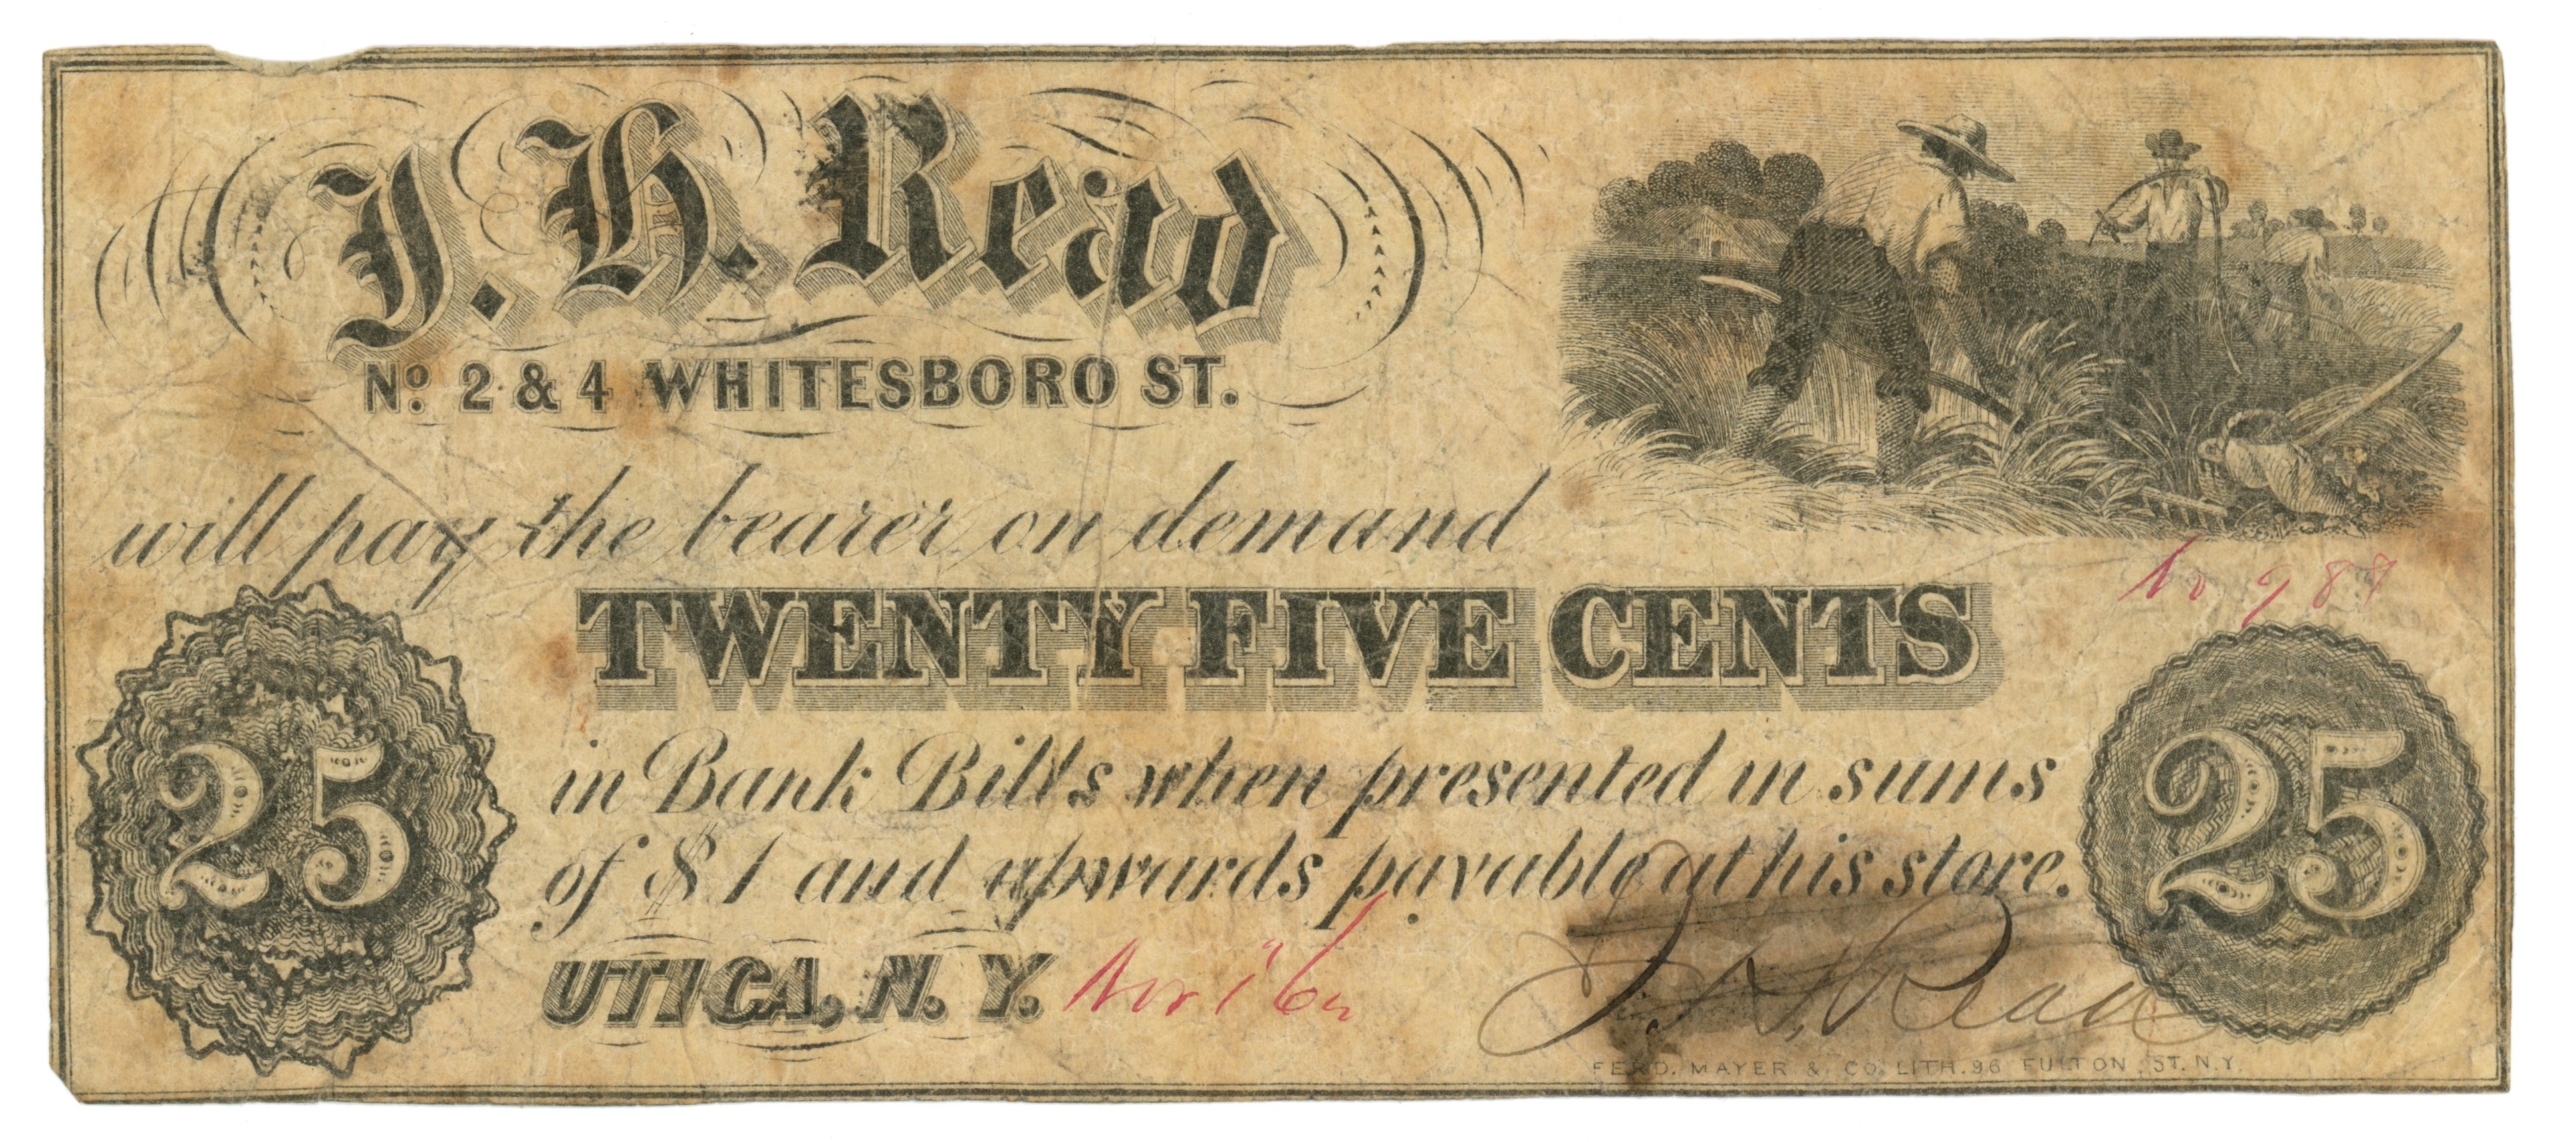 J. H. Read
No. 2 & 4 WHITESBORO ST.
will pay the bearer on demand
No 988
TWENTY FIVE CENTS
25
25
in Bank Bills when presented in sums
of $1 and upwards payable at his store.
UTICA, N. Y. Nov 1" 62
J. H. Read
FERD. MAYER & CO. LITH. 96 FULTON ST. N.Y.